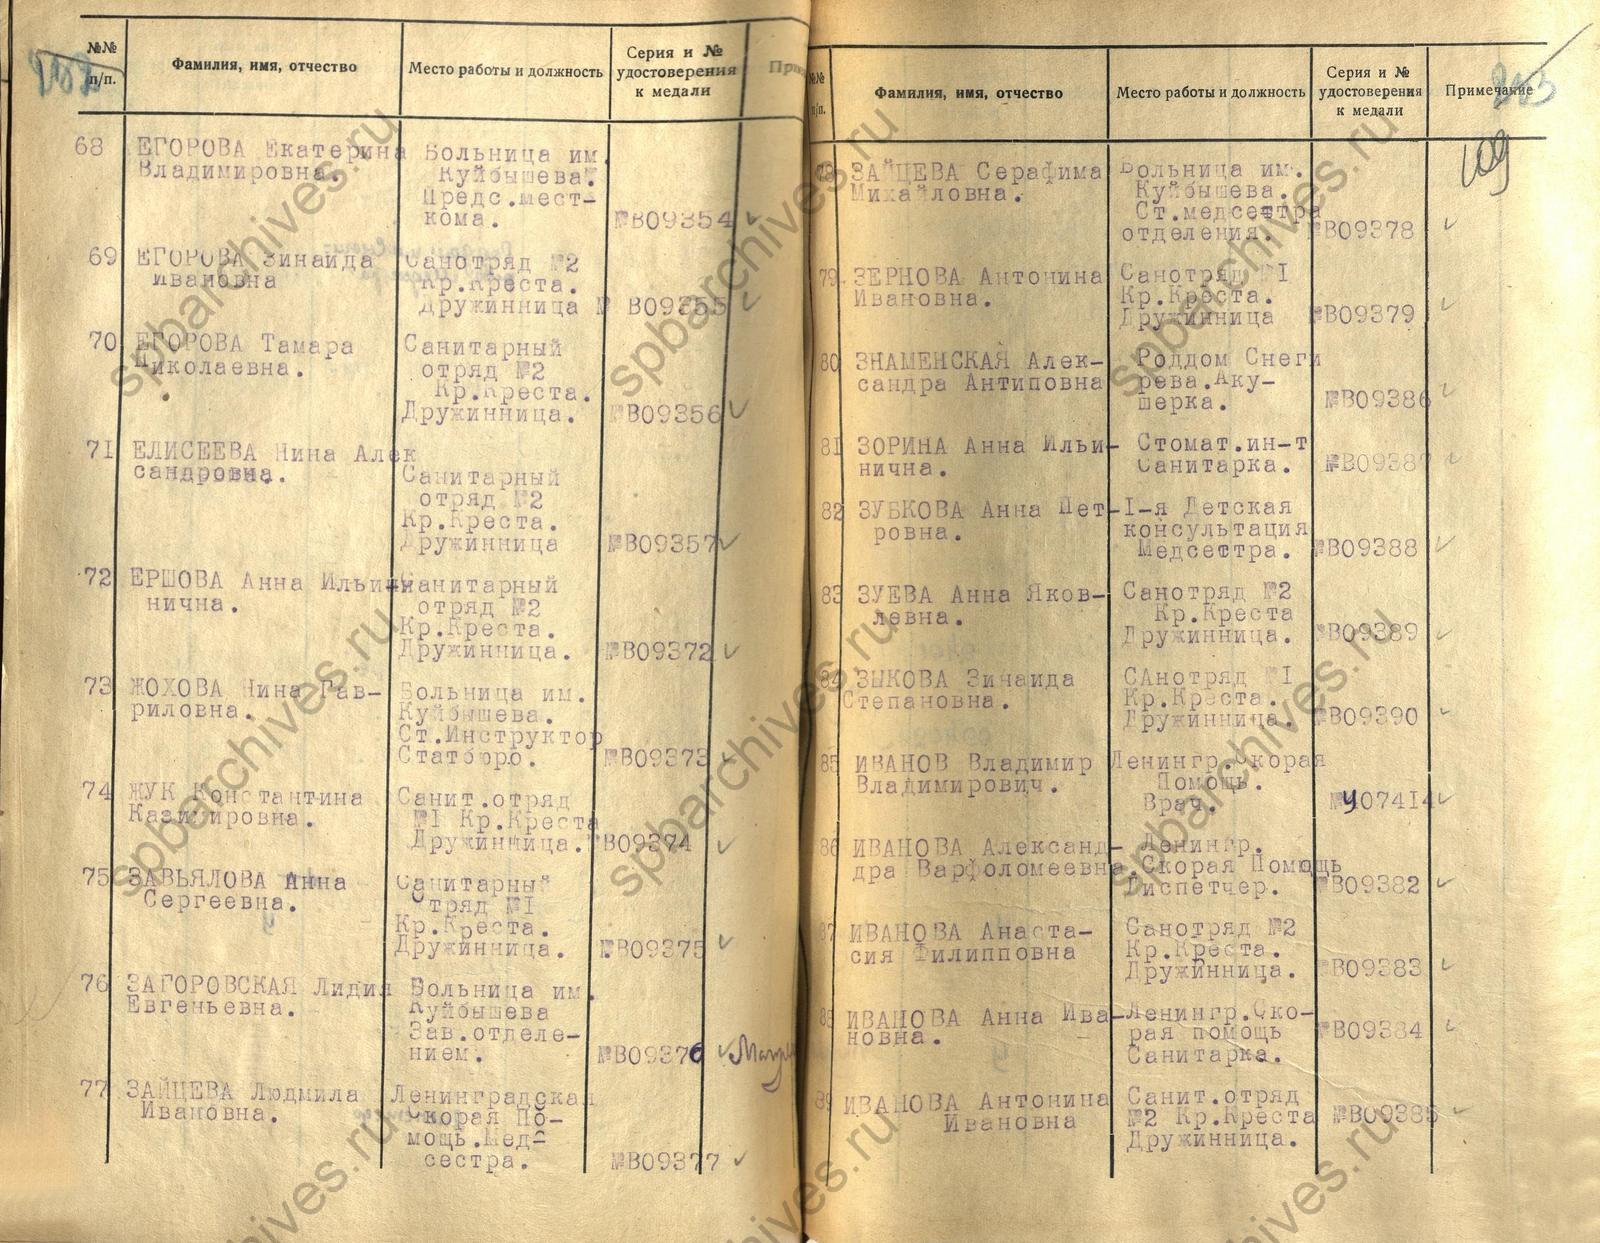 №№ п/п.
Фамилия, имя, отчество
Место работы и должность
Серия и № удостоверения к медали
68 ЕГОРОВА Екатерина Больница им.
Владимировна. Куйбышева.
Предс.мест-
кома. №В09354
69 ЕГОРОВА Зинаида Санотряд №2
Ивановна Кр.Креста.
Дружинница № В09355
70 ЕГОРОВА Тамара Санитарный
Николаевна. отряд №2
Кр.Креста.
Дружинница. №В09356
71 ЕЛИСЕЕВА Нина Алек
сандровна. Санитарный
отряд №2
Кр.Креста.
Дружинница №В09357
72 ЕРШОВА Анна Ильин Санитарный
нична. отряд №2
Кр.Креста.
Дружинница. №В09372
73 ЖОХОВА Нина Гав- Больница им.
риловна. Куйбышева.
Ст.Инструктор
Статбюро. №В09373
74 ЖУК Константина Санит.отряд
Казимировна. №I Кр.Креста
Дружинница. №В09374
75 ЗАВЬЯЛОВА Анна Санитарный
Сергеевна. отряд №I
Кр.Креста.
Дружинница. №В09375
76 ЗАГОРОВСКАЯ Лидия Больница им.
Евгеньевна. Куйбышева
Зав.отделе-
нием. №В09376
77 ЗАЙЦЕВА Людмила Ленинградская
Ивановна. Скорая По-
мощь.Мед-
сестра. №В09377
№№ п/п.
Фамилия, имя, отчество
Место работы и должность
Серия и № удостоверения к медали
Примечание
109
78 ЗАЙЦЕВА Серафима Больница им.
Михайловна. Куйбышева.
Ст.медсестра
отделения. №В09378
79. ЗЕРНОВА Антонина Санотряд №I
Ивановна. Кр.Креста.
Дружинница №В09379
80 ЗНАМЕНСКАЯ Алек- Роддом Снеги
сандра Антиповна рева.Аку-
шерка. №В09386
81 ЗОРИНА Анна Ильи- Стомат.ин-т
нична. Санитарка. №В09387
82 ЗУБКОВА Анна Пет- I-я Детская
ровна. консультация
Медсестра. №В09388
83 ЗУЕВА Анна Яков- Санотряд №2
левна. Кр.Креста
Дружинница. №В09389
84 ЗЫКОВА Зинаида САнотряд №I
Степановна. Кр.Креста.
Дружинница. №В09390
85 ИВАНОВ Владимир Ленингр.Скорая
Владимирович. Помощь.
Врач. №У07414
86 ИВАНОВА Александ- Ленингр.
дра Варфоломеевна.Скорая Помощь
Диспетчер. №В09382
87 ИВАНОВА Анаста- Санотряд №2
сия Филипповна Кр.Креста.
Дружинница. №В09383
88 ИВАНОВА Анна Ива- Ленингр.Ско-
новна. рая помощь №В09384
Санитарка.
89 ИВАНОВА Антонина Санит.отряд
Ивановна №2 Кр.Креста №В09385
Дружинница.
spbarchives.ru
spbarchives.ru
spbarchives.ru
spbarchives.ru
spbarchives.ru
spbarchives.ru